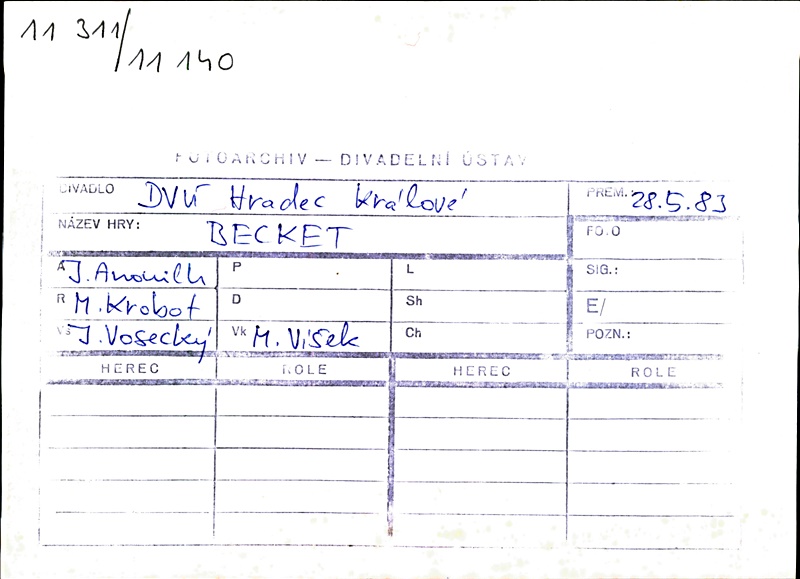 11 311/
11 140
FOTOARCHIV — DIVADELNÍ ÚSTAV
DIVADLO DVÚ Hradec Králové PREM.: 28.5.83
NÁZEV HRY: BECKET FO.O
A J. Anouilh P L SIG.:
R M. Krobot D Sh E/
Vš J. Vosecký Vk M. Víšek Ch POZN.:
HEREC ROLE HEREC ROLE